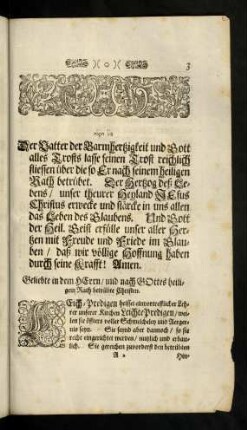 3
Der Vatter der Barmhertzigkeit und Gott
alles Trosts lasse seinen Trost reichlich
fliessen über die so Er nach seinem heiligen
Rath betrübet. Der Hertzog deß Le-
bens / unser theurer Heyland JEsus
Christus erwecke und stärcke in uns allen
das Leben des Glaubens. Und Gott
der Heil. Geist erfülle unser aller Her-
tzen mit Freude und Friede im Glau-
ben / daß wir völlige Hoffnung haben
durch seine Krafft! Amen.
Geliebte in dem HErrn / und nach GOttes heili-
gem Rath betrübte Christen.
LEich-Predigen heisset ein vortrefflicher Leh-
rer unserer Kirchen Leichte Predigen / wei-
len sie öffters voller Schmeicheley und Aerger-
nis seyn. Sie seynd aber dannoch / so sie
recht eingerichtet werden / nützlich und erbau-
lich. Sie gereichen zuvorderst den betrübten
A 2 Hin-